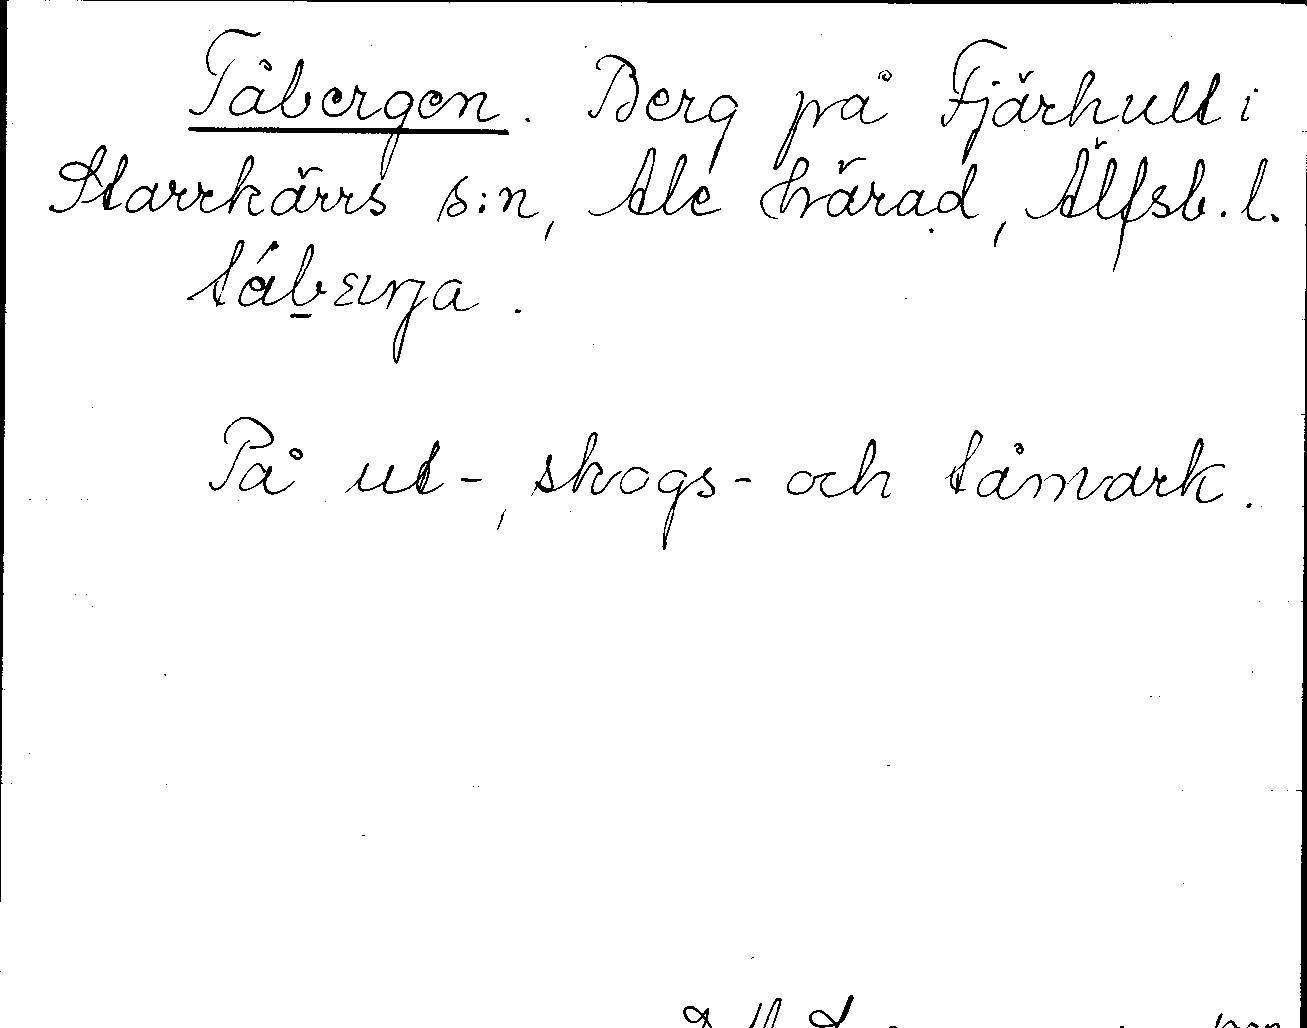 Tåbergen. Berg på Fjärhult i
Starrkärrs s:n, Ale härad, Älfsb. l.
På ut-, skogs- och tåmark.